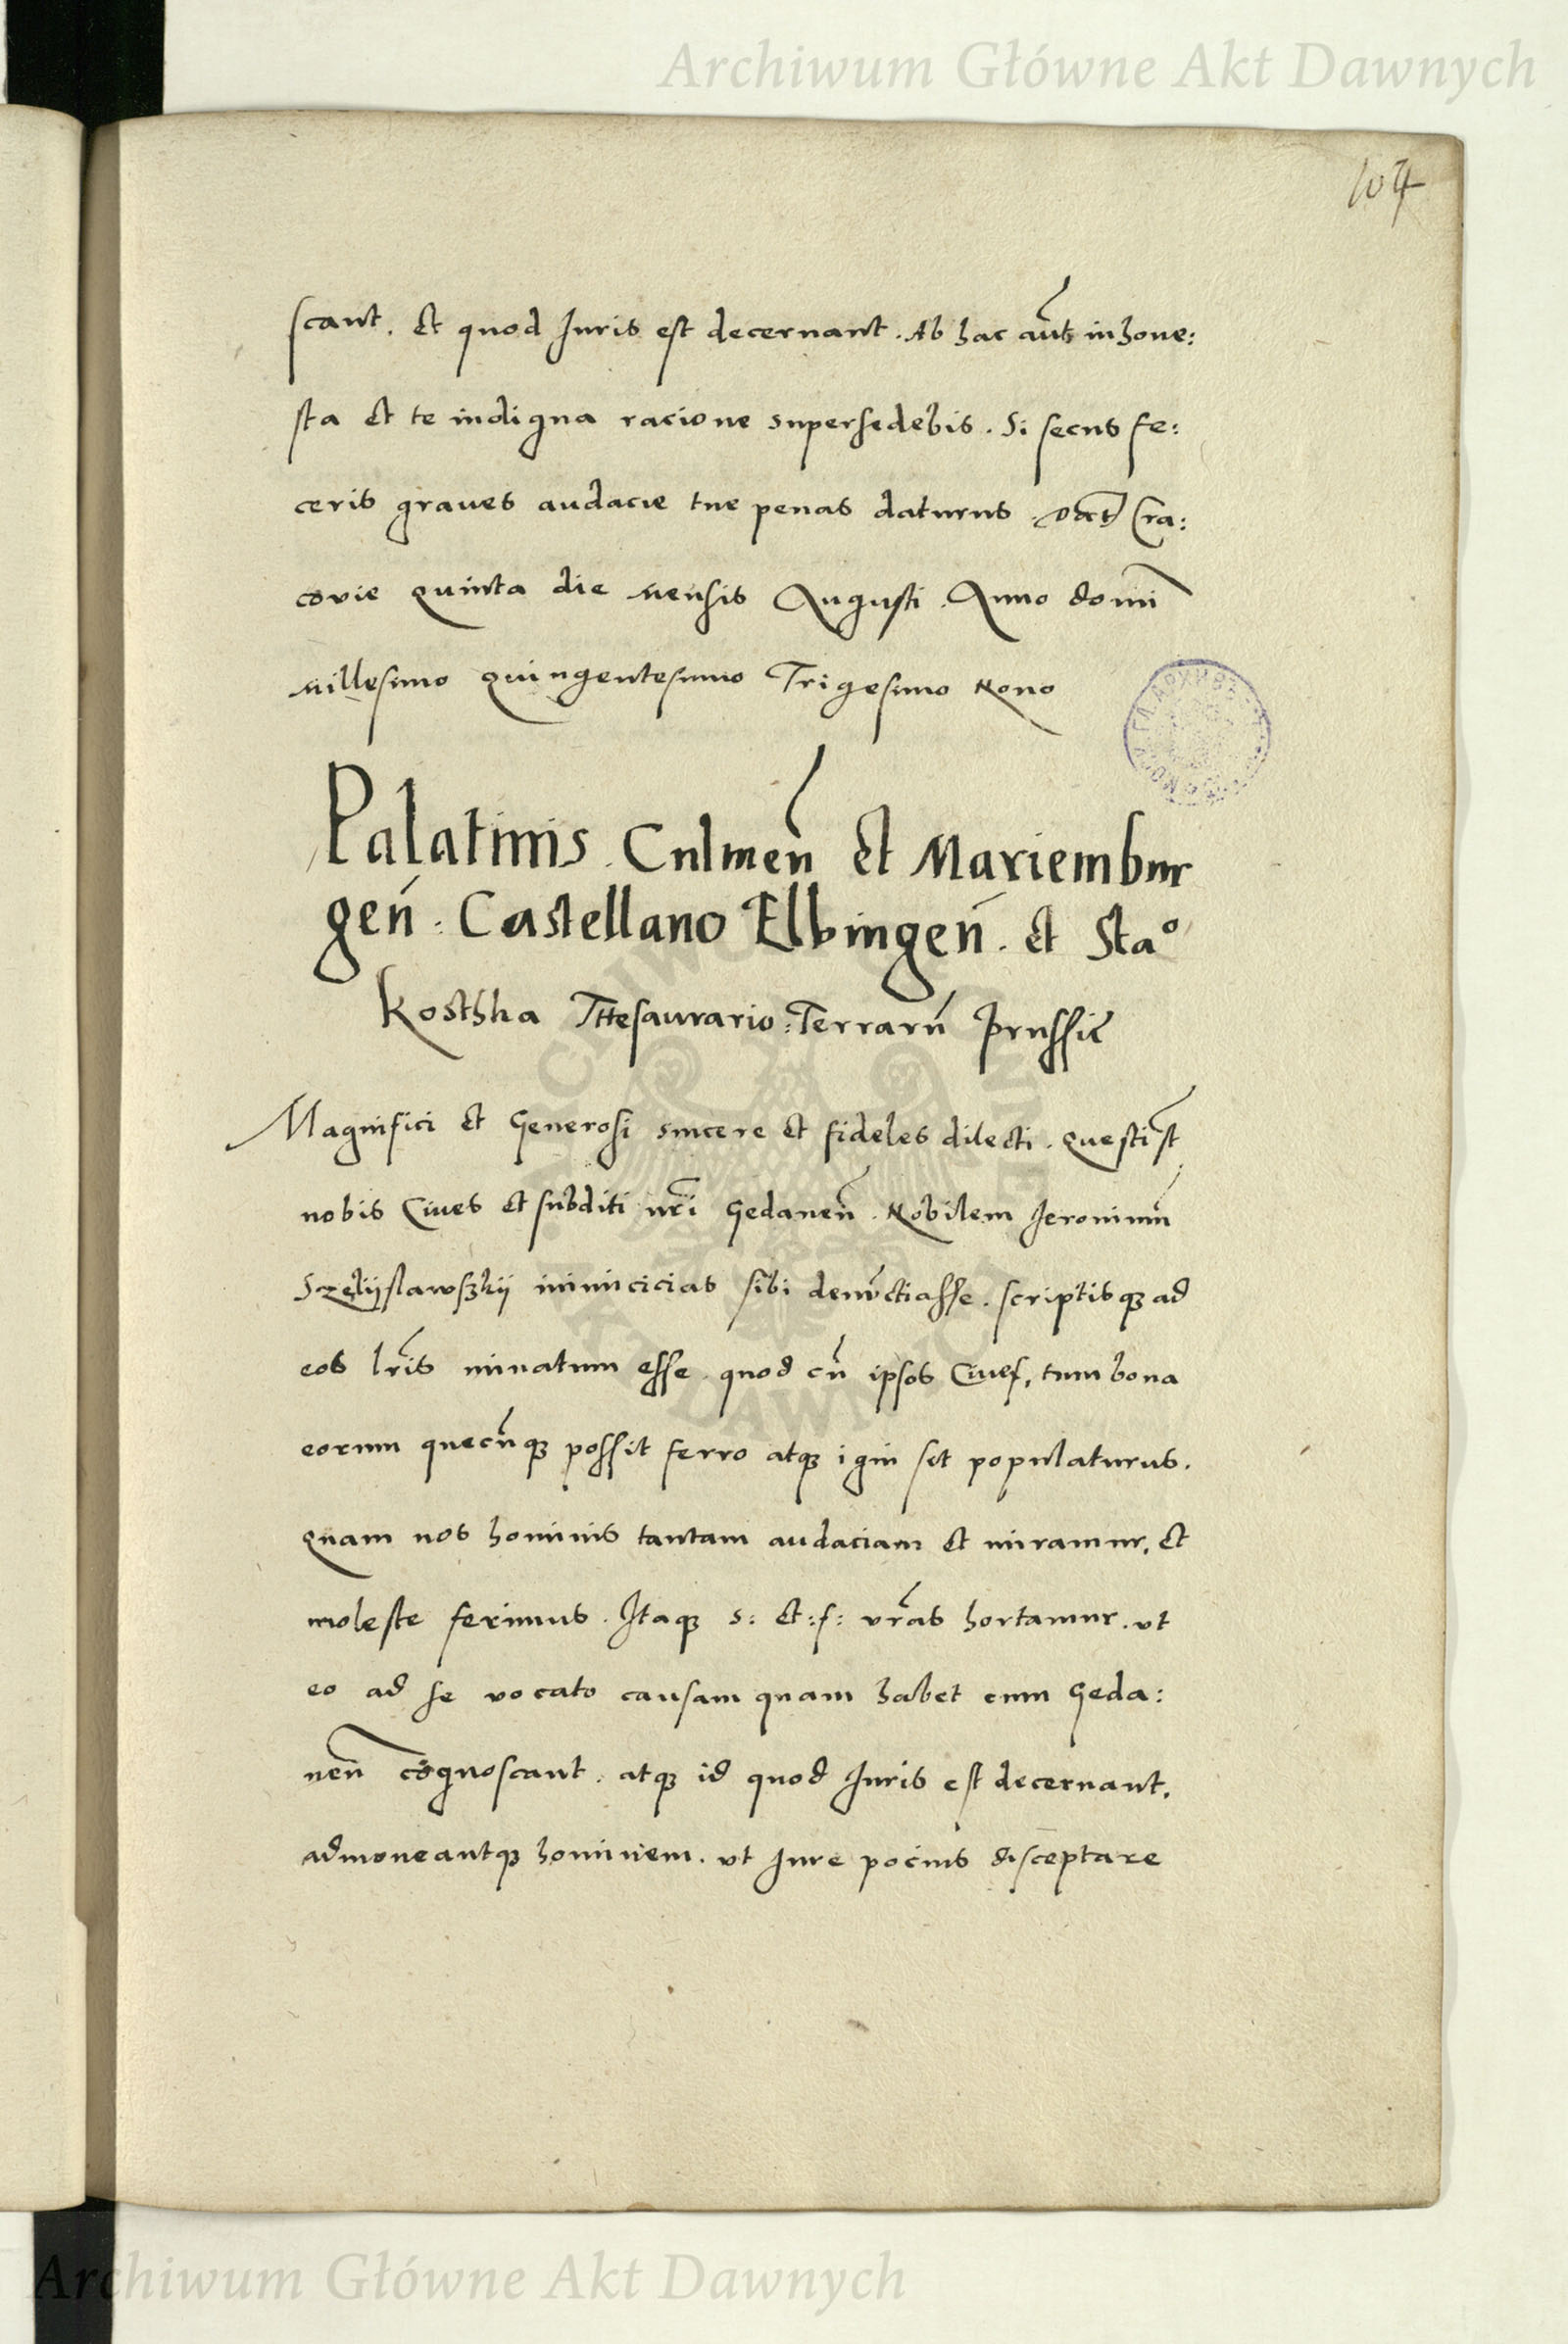 Archiwum Główne Akt Dawnych
104
scant. Et quod Juris est decernant. Ab hac aut̃ inhone:
sta Et te indigna racione supersedebis. Si secus fe:
ceris graues audacie tue penas daturus. Dat̃ Cra:
covie quinta die mensis Augusti. Anno domĩ
millesimo quingentesimo Trigesimo Nono
Palatinis. Culmeñ Et Mariembur
geñ: Castellano Elbingeñ. et Staº
Kosthka Thesaurario: Terrarũ Prussie
Magnifici Et Generosi sincere Et fideles dilecti. Questi st̃
nobis Ciues Et subditi nr̃i Gedaneñ. Nobilem Jeronimũ
inimicicias sibi denũctiasse. scriptisqꝫ ad
eos lr̃is minatum esse. quod cũ ipsos Ciues, tum bona
eorum quecũqꝫ possit ferro atqꝫ igni sit populaturus.
Quam nos hominis tantam audaciam Et miramur, Et
moleste ferimus. Itaqꝫ s: Et: f: vr̃as hortamur. vt
eo ad se vocato causam quam habet cum Geda:
neñ cognoscant. atqꝫ id quod Juris est decernant.
admoneantqꝫ hominem. vt Jure pocius disceptare
Archiwum Główne Akt Dawnych